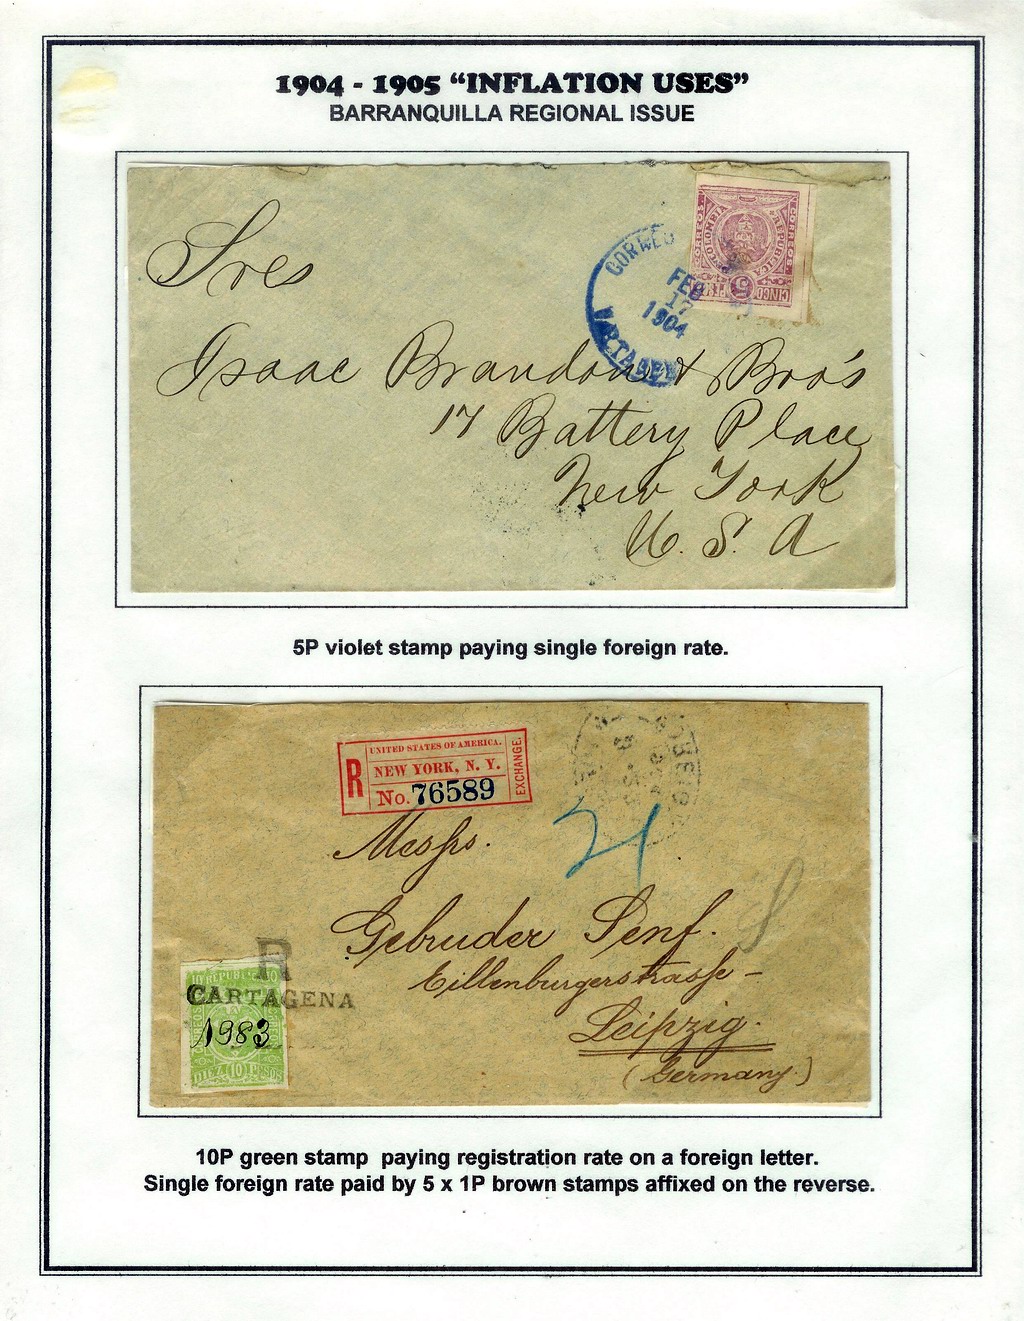 1904 - 1905 “INFLATION USES”
BARRANQUILLA REGIONAL ISSUE
CORREOS
CORREOS.
REPUBLICA
COLOMBIA
CINCO 5
CORREO
FEB
17
1904
CARTAGEN
Sres
Isaac Brandon & Bro's
17 Battery Place
New York
U. S. A
5P violet stamp paying single foreign rate.
R
UNITED STATES OF AMERICA.
NEW YORK, N. Y.
No. 76589
EXCHANGE.
21
Messrs.
Gebruder Senf.
Eillenburgerstrasse -
Leipzig.
(Germany.)
R
CARTAGENA
1983
DIEZ (10) PESOS
10P green stamp paying registration rate on a foreign letter.
Single foreign rate paid by 5 x 1P brown stamps affixed on the reverse.